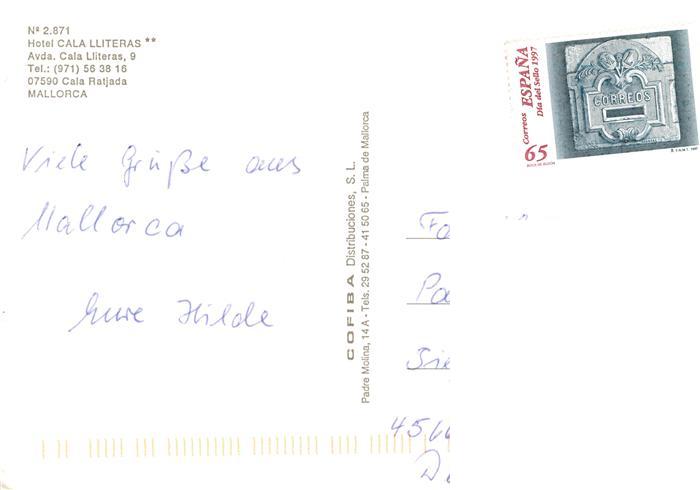 Nº 2.871
Hotel CALA LLITERAS **
Avda. Cala Lliteras, 9
Tel.: (971) 56 38 16
07590 Cala Ratjada
MALLORCA
Viele Grüße aus
Mallorca
Eure Hilde
COFIBA Distribuciones, S. L.
Padre Molina, 14 A - Tels. 29 52 87 - 41 50 65 - Palma de Mallorca
Correos ESPAÑA
Día del Sello 1997
65
CORREOS